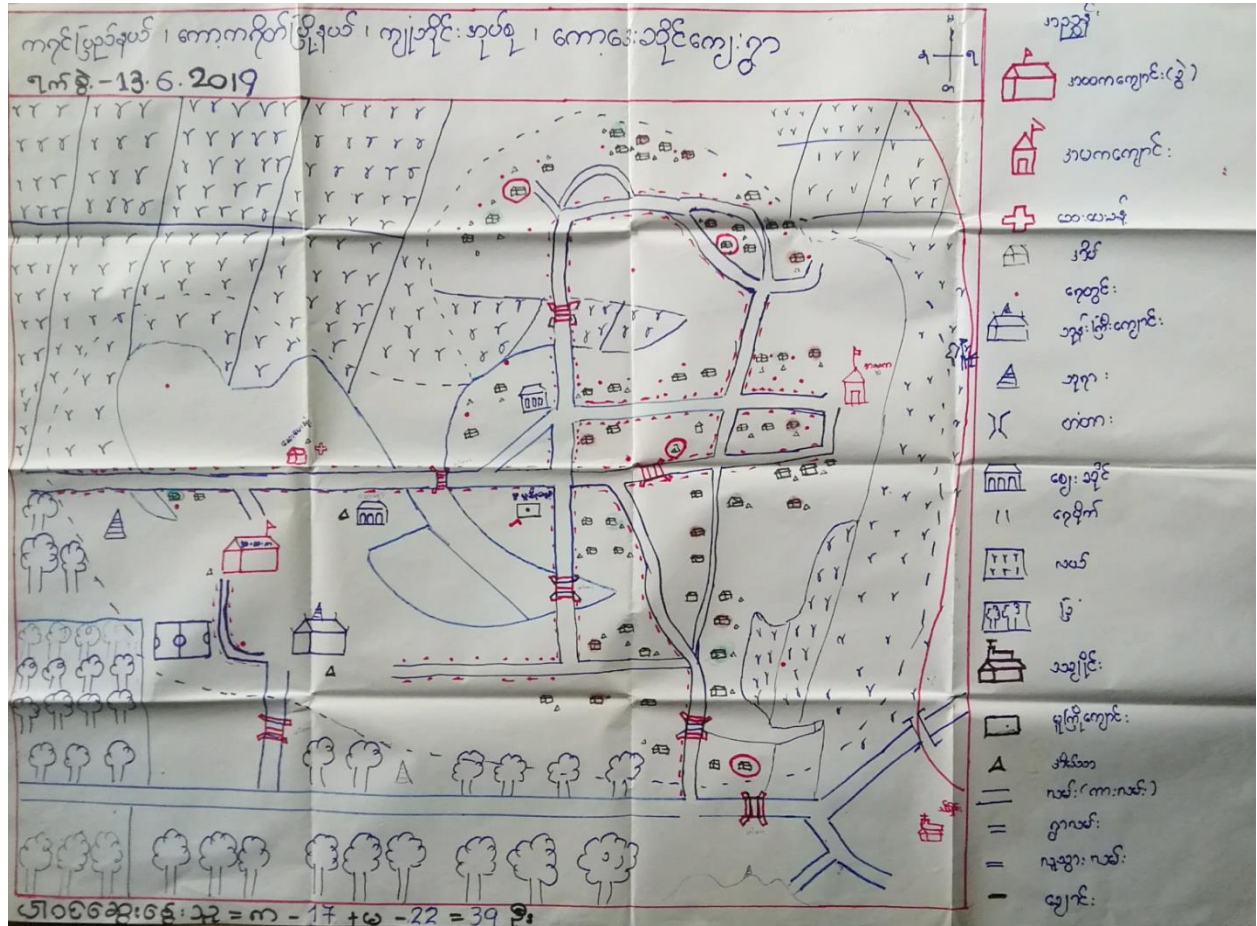 ကရင်ပြည်နယ်၊ ကော့ကရိတ်မြို့နယ်၊ ကျုံဘိုင်းအုပ်စု၊ ကော့ဒေးသိုင်ကျေးရွာ
ရက်စွဲ.-13.6.2019
အညွှန်း
အထကကျောင်း(ခွဲ)
အမကကျောင်း
ဆေးပေးခန်း
အိမ်
ရေတွင်း
ဘုန်းကြီးကျောင်း
ဘုရား
တံတား
ဈေးဆိုင်
ရေပိုက်
လယ်
ခြံ
သင်္ချိုင်း
မူကြိုကျောင်း
အိမ်သာ
လမ်း(ကားလမ်း)
ရွာလမ်း
လူသွားလမ်း
ချောင်း
ပါဝင်ဆွေးနွေးသူ = က - 17 + မ - 22 = 39 ဦး